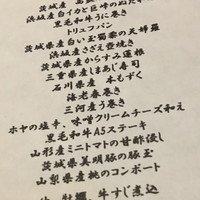 浜坂産白イカと巨峰のぬた
黒毛和牛うに巻き
トリュフパン
茨城県産白い玉蜀黍の天婦羅
浜坂産さざえ壺焼き
茨城県産からすみ蓮根
三重県産しまあじ寿司
石川県産 本もずく
海老春巻き
三河産う巻き
ホヤの塩辛、味噌クリームチーズ和え
黒毛和牛A5ステーキ
山形産ミニトマトの甘酢浸し
茨城県美明豚の豚玉
山梨県産桃のコンポート
牛すじ煮込